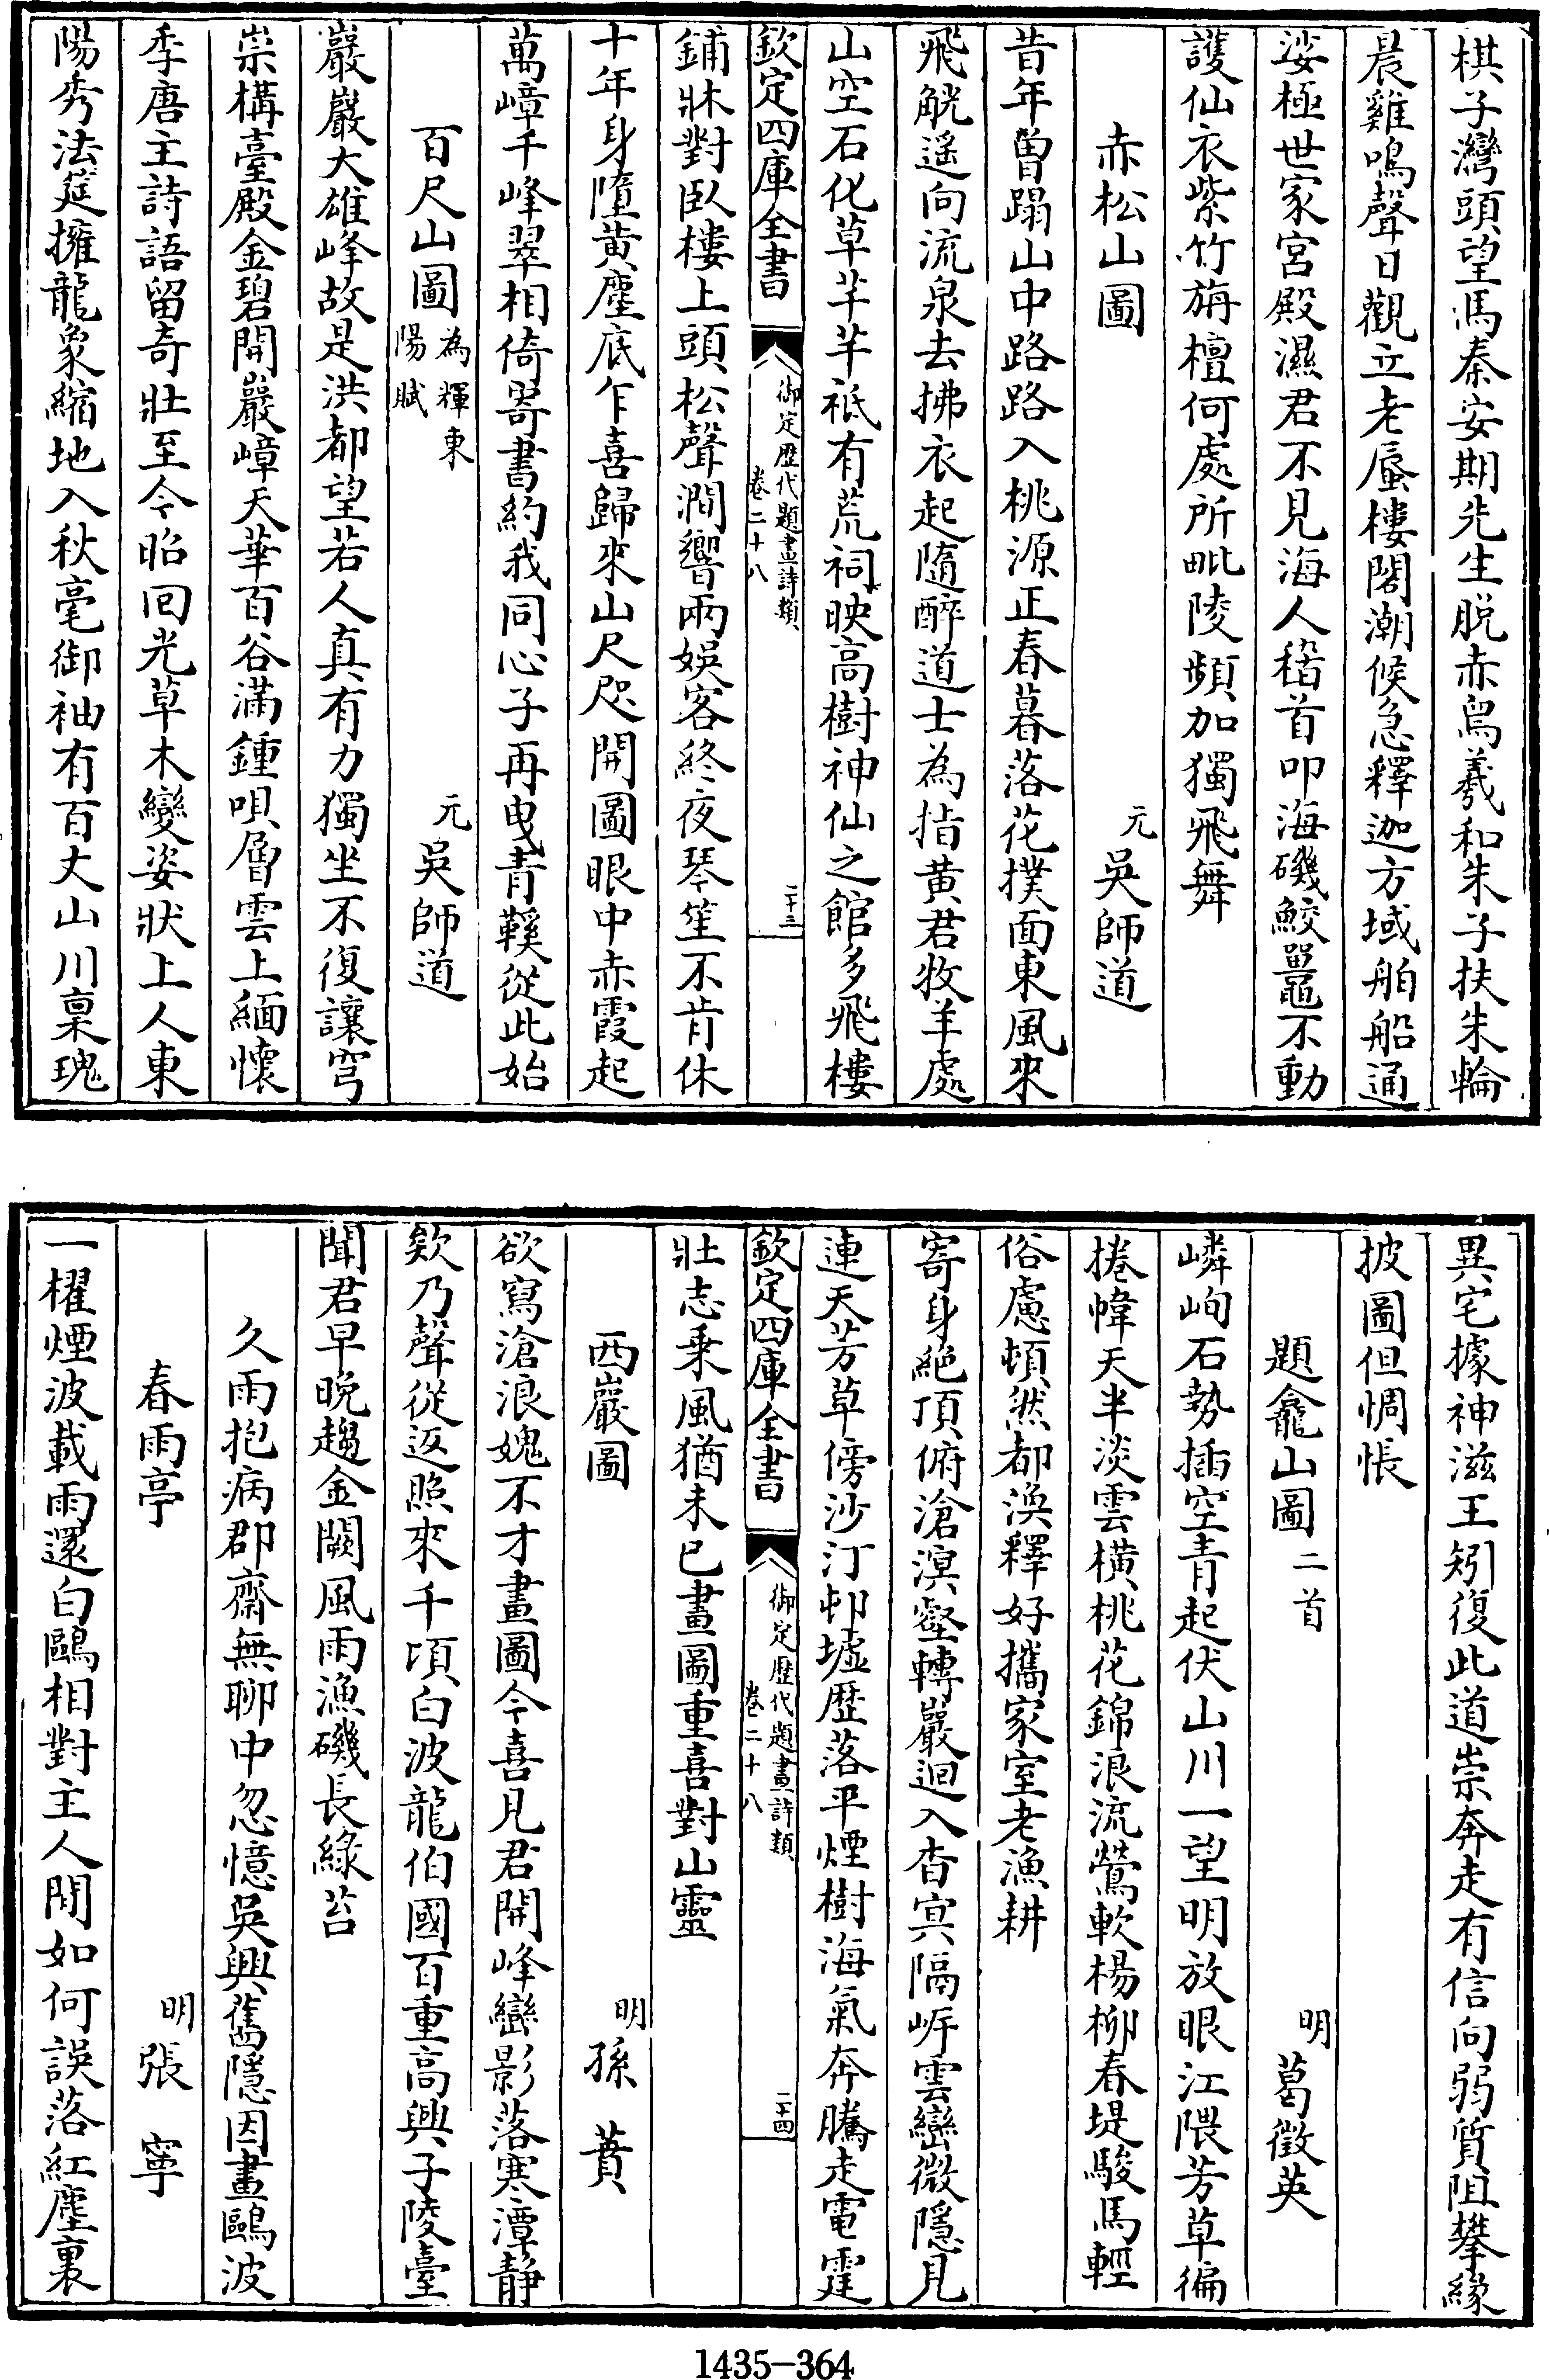 棋子灣頭望馬秦安期先生脱赤舄羲和朱子扶朱輪
晨雞鳴聲日觀立老蜃樓閣潮候急釋迦方域舶船通
娑極世家宮殿濕君不見海人稽首叩海磯鮫鼉不動
護仙衣紫竹旃檀何處所毗陵頻加獨飛舞
赤松山圖
元吳師道
昔年曽蹋山中路路入桃源正春暮落花撲面東風來
飛觥遥向流泉去拂衣起隨醉道士為指黄君牧羊處
山空石化草芊芊祗有荒祠映高樹神仙之館多飛樓
欽定四庫全書
御定歴代題畫詩類
卷二十八
二十三
鋪牀對臥樓上頭松聲澗響兩娛客終夜琴笙不肯休
十年身墮黄塵底乍喜歸來山尺咫開圖眼中赤霞起
萬嶂千峰翠相倚寄書約我同心子再曳青鞵從此始
百尺山圖
為輝東
陽賦
元吳師道
巖巖大雄峰故是洪都望若人真有力獨坐不復讓穹
崇構臺殿金碧開巖嶂天華百谷滿鍾唄層雲上緬懷
季唐主詩語留奇壯至今昭回光草木變姿狀上人東
陽秀法筵擁龍象縮地入秋毫御袖有百丈山川稟瑰
異宅據神滋王矧復此道崇奔走有信向弱質阻攀緣
披圖但惆悵
題龕山圖二首
明葛徵英
嶙峋石勢插空青起伏山川一望明放眼江隈芳草徧
捲幃天半淡雲横桃花錦浪流鶯軟楊柳春堤駿馬輕
俗慮頓然都渙釋好攜家室老漁耕
寄身絶頂俯滄溟壑轉巖迴入杳寘隔㟁雲巒微隱見
連天芳草傍沙汀邨墟歴落平煙樹海氣奔騰走電霆
欽定四庫全書
御定歴代題畫詩類
卷二十八
二十四
壯志乗風猶未已畫圖重喜對山靈
西巖圖
明孫蕡
欲寫滄浪媿不才畫圖今喜見君開峰巒影落寒潭静
欸乃聲從返照來千頃白波龍伯國百重高興子陵臺
聞君早晩趨金闕風雨漁磯長緑苔
久雨抱病郡齋無聊中忽憶吳興舊隱因畫鷗波
春雨亭
明張寧
一櫂煙波載雨還白鷗相對主人閒如何誤落紅塵裏
1435-364